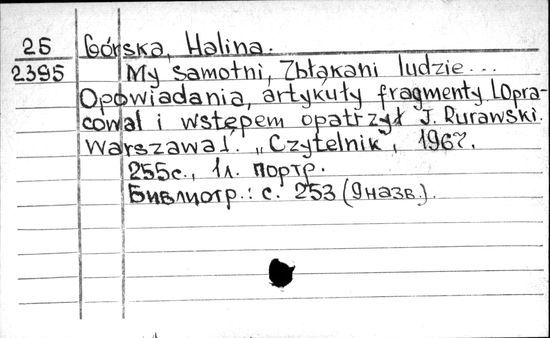 25
2395
Górska, Halina.
My samotni, Zbłąkani ludzie...
Opowiadania, artykuły fragmenty [Opra-
cowal i wstępem opatrzył J. Rurawski.
Warszawa]. „Czytelnik", 1967.
255с., 1л. портр.
Библиогр.: с. 253 (9назв.).